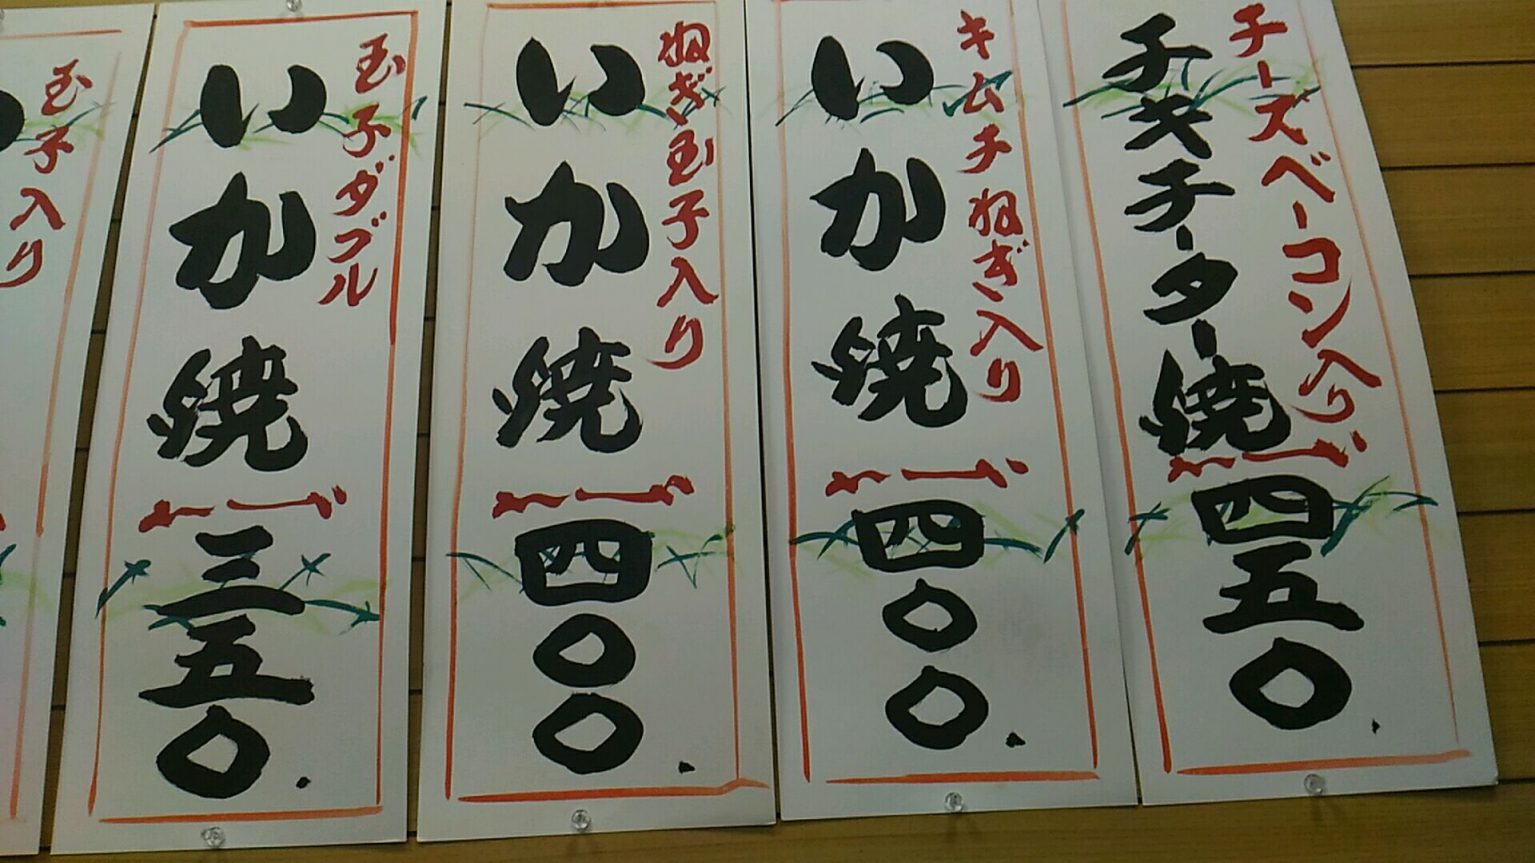 チーズベーコン入り
チャキチーター焼
四五〇
キムチねぎ入り
いか焼
四〇〇
ねぎ玉子入り
いか焼
四〇〇
玉子ダブル
いか焼
三五〇
玉子入り